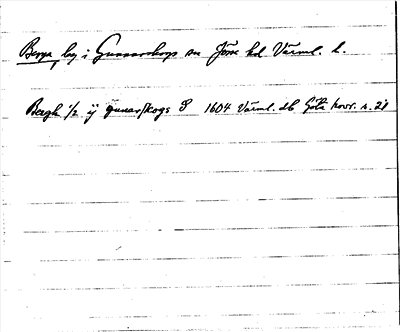 Berga, by i Gunnarskogs sn Jösse hd Värml. l.
Bergh 1/2 ij gunarskogs S 1604 Värml. db Göta hovr. n. 21